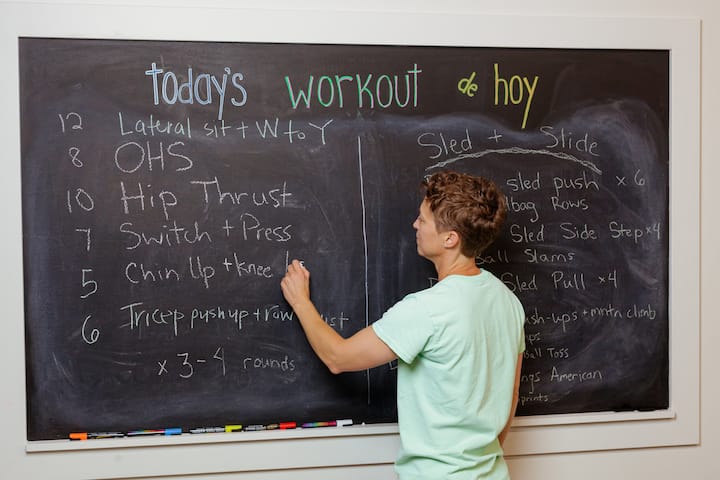 today's workout de hoy
12 Lateral sit + W to Y
8 OHS
10 Hip Thrust
7 Switch + Press
5 Chin Up + Knee
6 Tricep pushup + row
x 3-4 rounds
Sled + Slide
sled push x6
Rows
Sled Side Step x4
Ball Slams
Sled Pull x4
+ mntn climb
Ball Toss
American